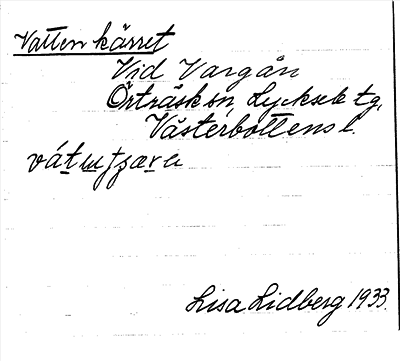 Vattenkärret
Vid Vargån
Örträsk sn, Lycksele tg,
Västerbottens l.
Lisa Lidberg 1933.